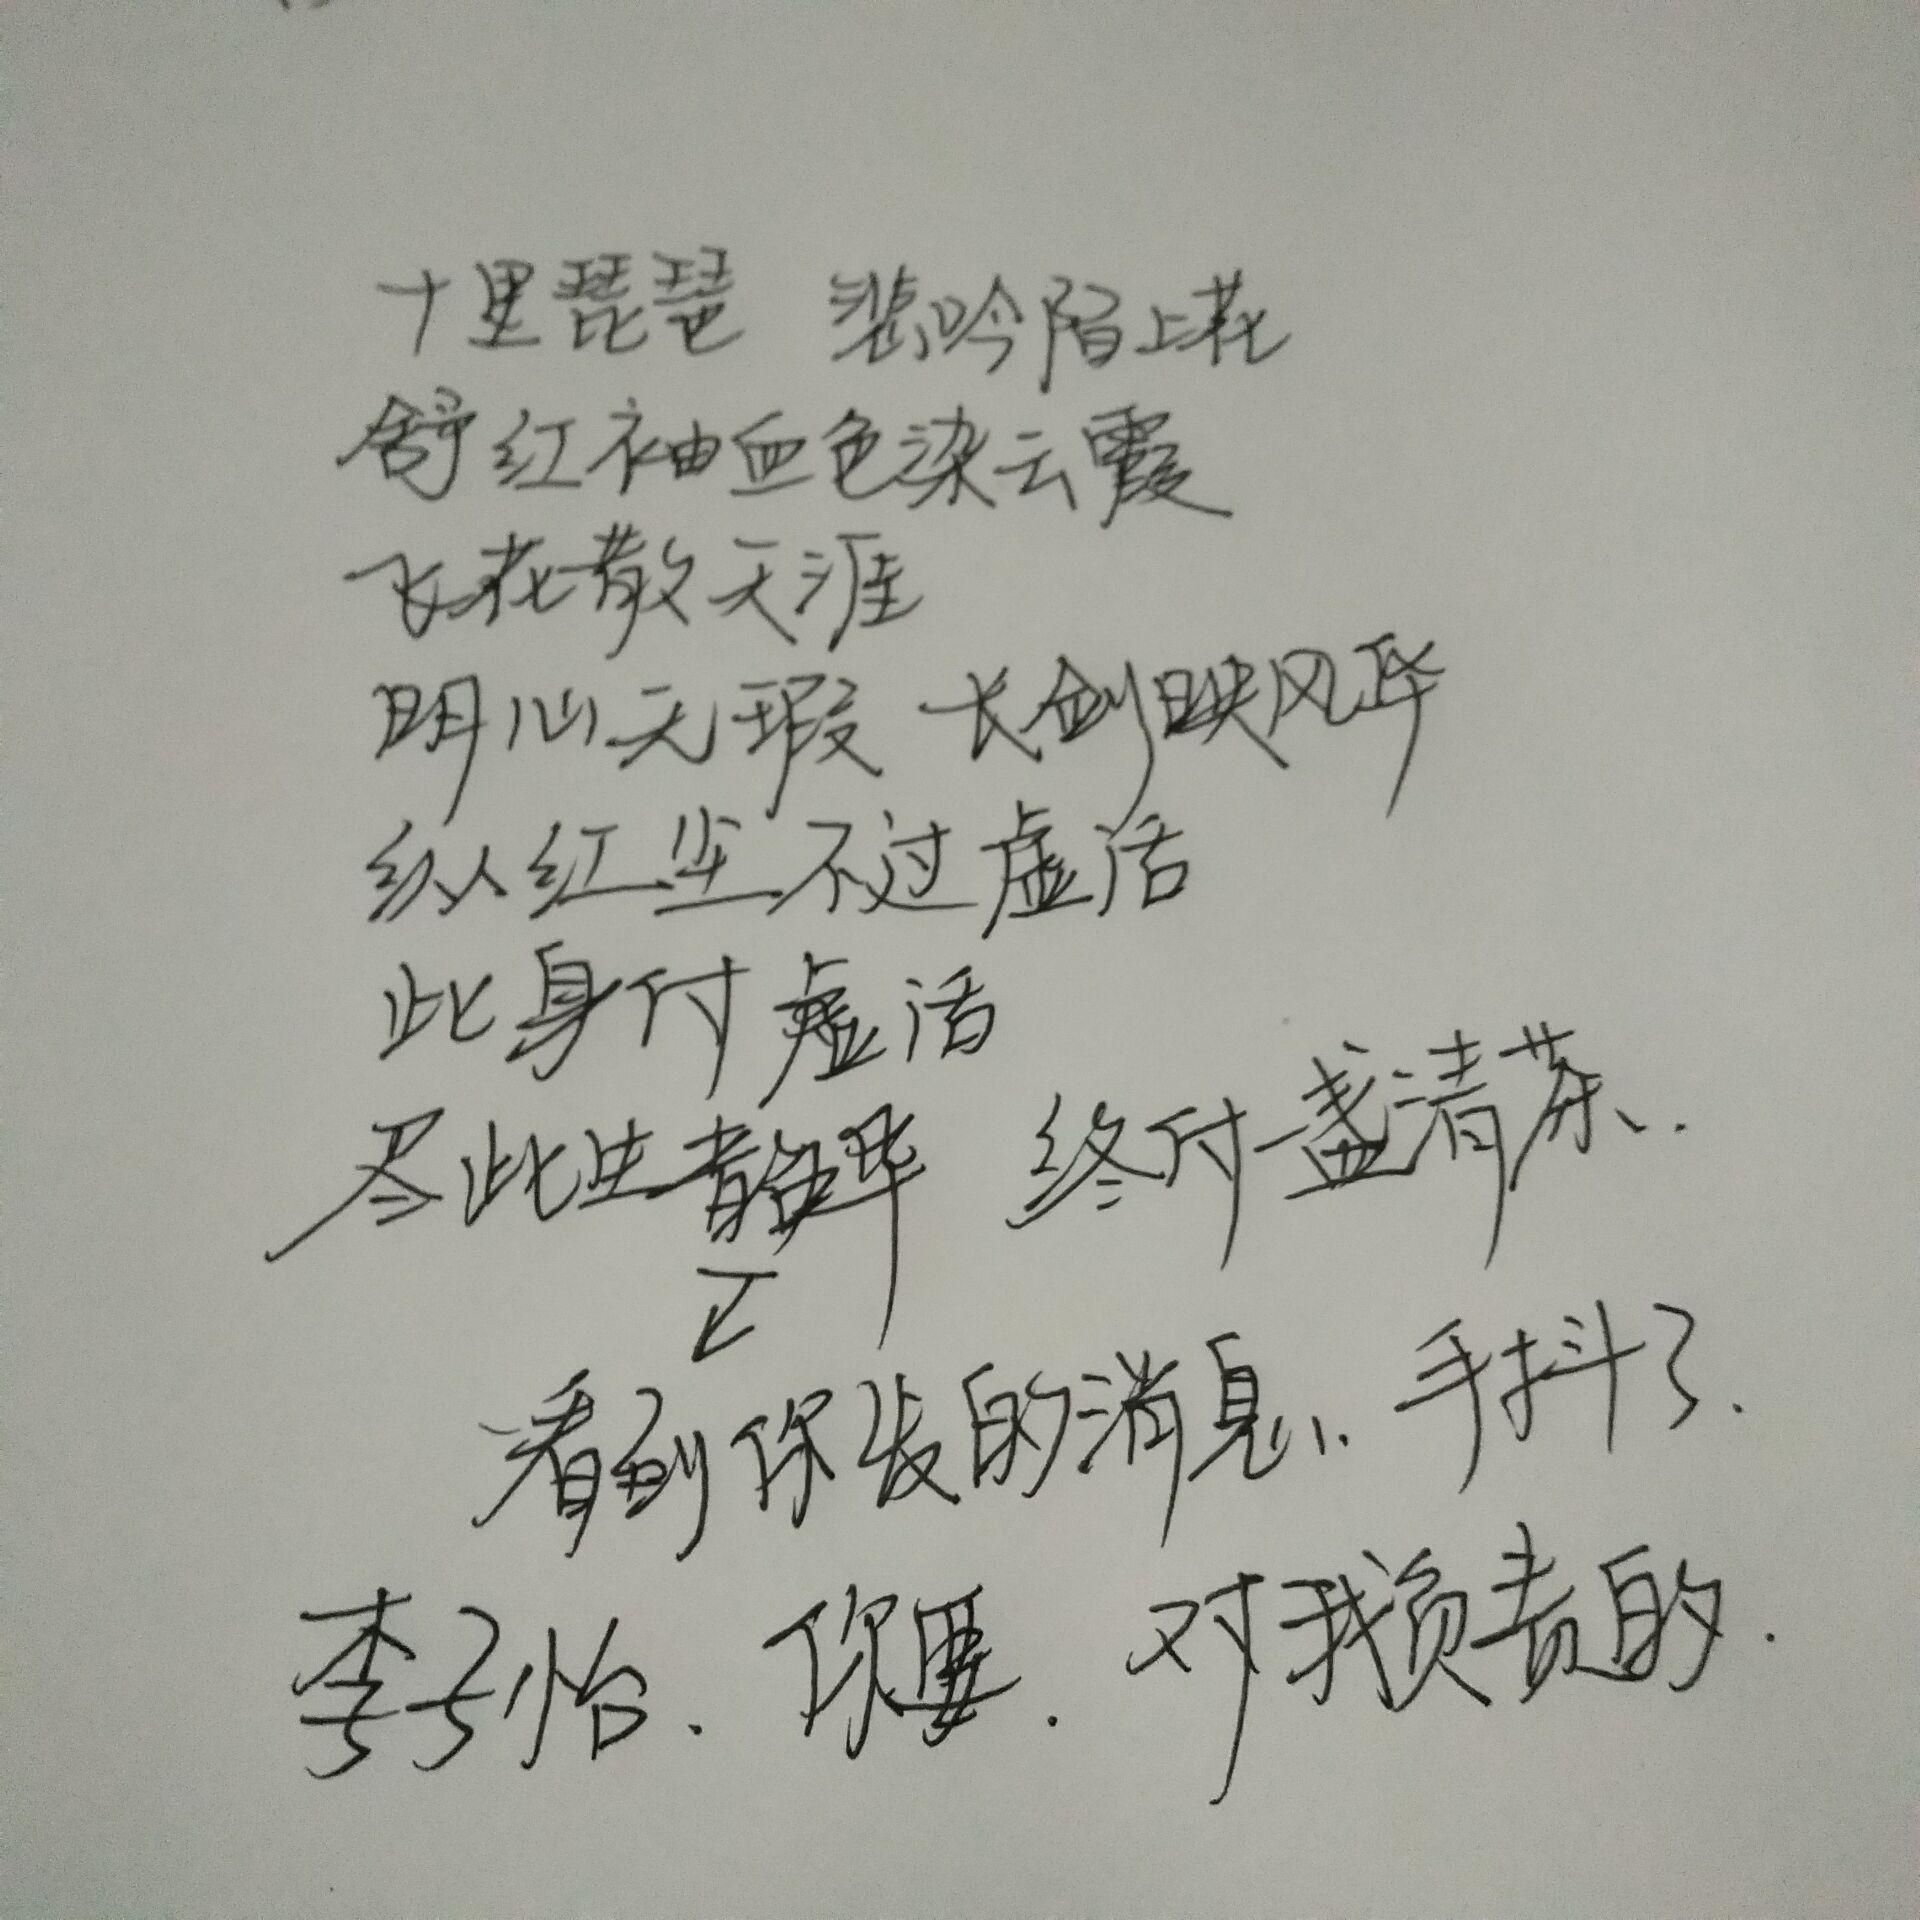 十里琵琶 悲吟陌上花
舒红袖血色染云霞
飞花散天涯
明心无瑕 长剑映风华
纵红尘不过虚话
此身付虚话
尽此生韶华 终付盏清茶.
看到你发的消息、手抖了.
李子怡、你要. 对我负责的.